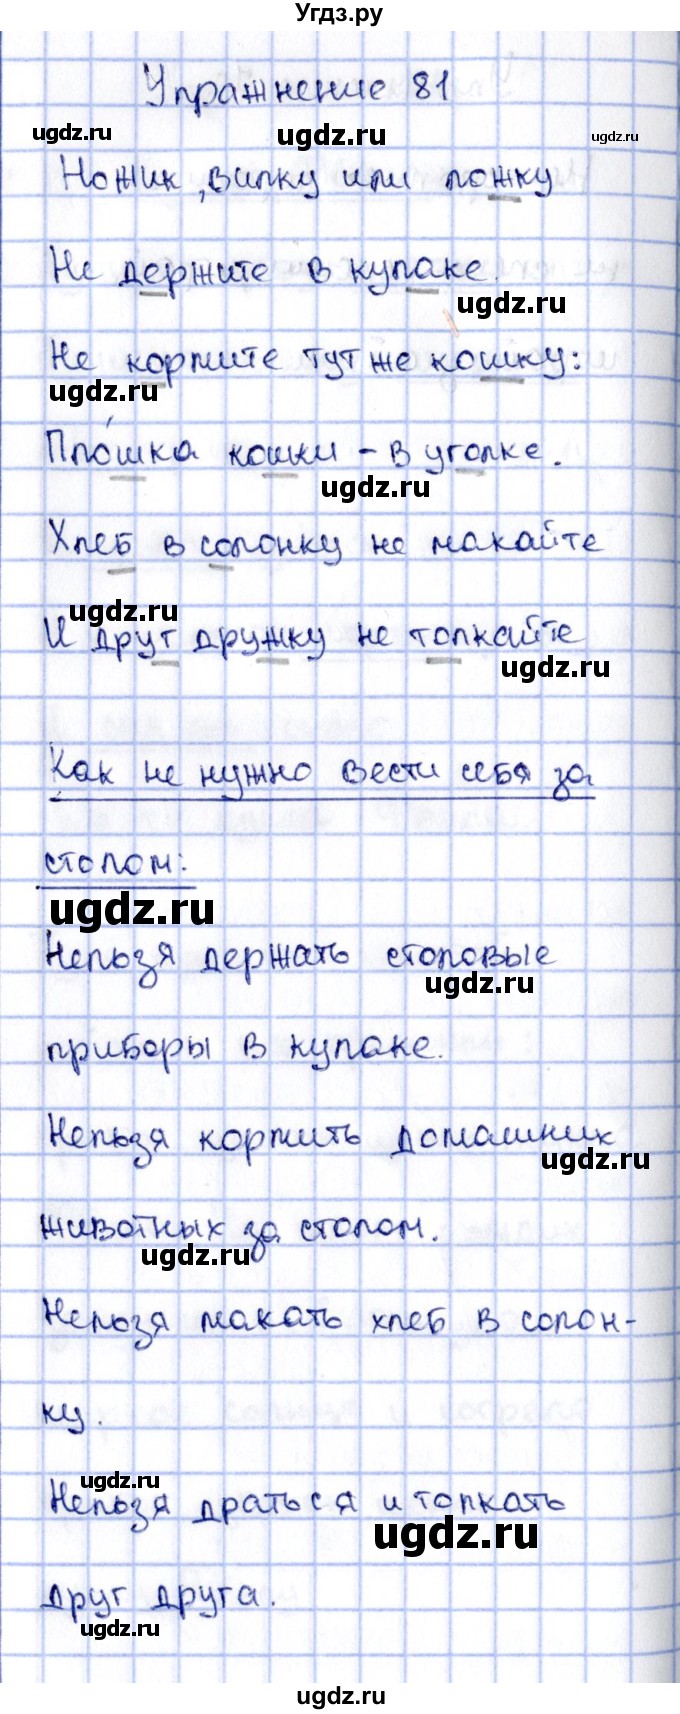 Угдз.ру
Упражнение 81
ugdz.ru ugdz.ru ugdz.ru
Ножик, вилку или ложку
Не держите в кулаке.
ugdz.ru
Не кормите тут же кошку:
ugdz.ru
Пло́шка кошки - в уголке.
ugdz.ru
Хлеб в солонку не макайте
ugdz.ru
И друг дружку не толкайте
ugdz.ru
Как не нужно вести себя за
столом:
ugdz.ru
Нельзя держать столовые
ugdz.ru
приборы в кулаке.
Нельзя кормить домашник
ugdz.ru
животных за столом.
ugdz.ru
Нельзя макать хлеб в солон-
ку.
ugdz.ru
Нельзя драться и толкать
ugdz.ru
друг друга.
ugdz.ru
ugdz.ru